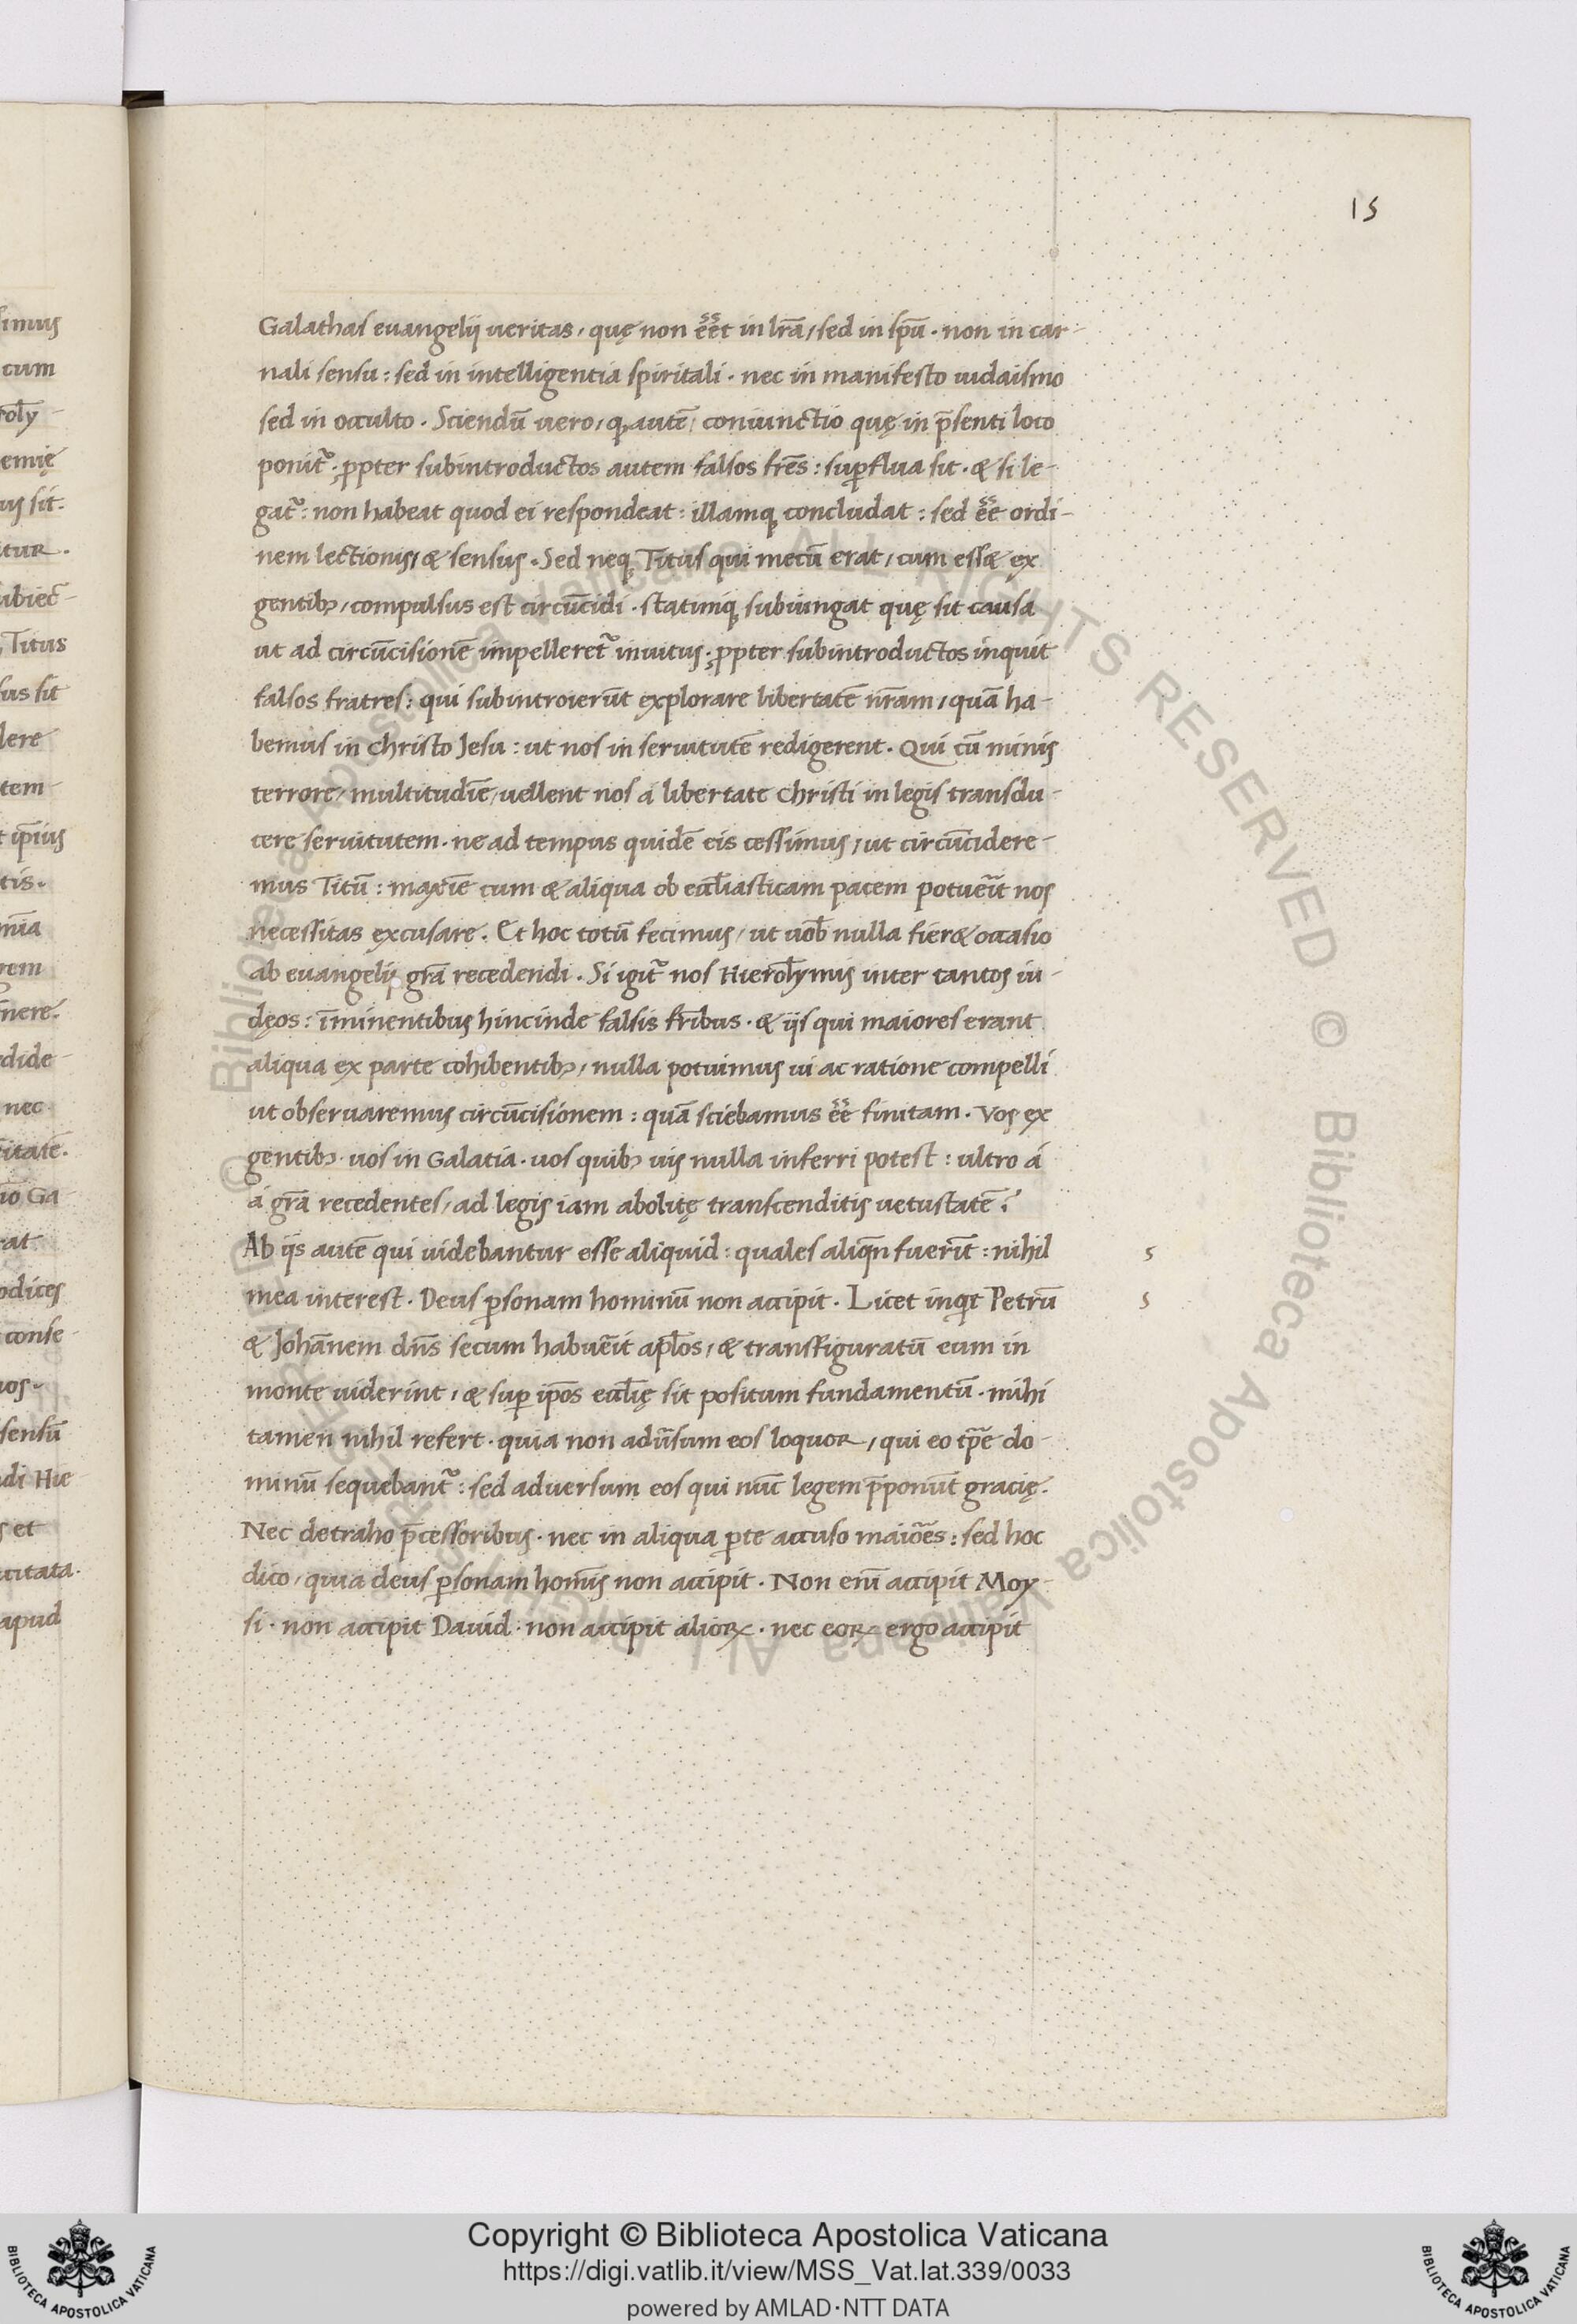 15
Galathas euangelij ueritas, quę non eēt in lr̄a, sed in spū. non in car-
nali sensu: sed in intelligentia spiritali. nec in manifesto iudaismo
sed in occulto. Sciendū uero, q, autē, coniunctio quę in p̄senti loco
ponit̃. ꝓpter subintroductos autem falsos fr̄es: suꝑflua sit. & si le-
gat̃: non habeat quod ei respondeat: illamq; concludat: sed eē ordi-
nem lectionis, & sensus. Sed neq; Titus qui mecū erat, cum ess& ex
gentibꝫ, compulsus est circūcidi. statimq; subiungat quę sit causa
ut ad circūcisionē impelleret̃ inuitus. ꝓpter subintroductos inquit
falsos fratres: qui subintroierūt explorare libertatē nr̄am, quā ha-
bemus in christo Jesu: ut nos in seruitutē redigerent. Qui cū minis
terrore, multitudīe, uellent nos a libertate christi in legis transdu-
cere seruitutem. ne ad tempus quidē eis cessimus, ut circūcidere-
mus Titū: maxīe cum & aliqua ob eccl̄iasticam pacem potueīt nos
necessitas excusare. Et hoc totū fecimus, ut uob̄ nulla fier& occasio
ab euangelij gr̄a recedendi. Si igit̃ nos Hierol̄ymis inter tantos iu-
dęos: īminentibus hincinde falsis fr̄ibus. & ijs qui maiores erant
aliqua ex parte cohibentibꝫ, nulla potuimus ui ac ratione compelli
ut obseruaremus circūcisionem: quā sciebamus eē finitam. Vos ex
gentibꝫ. uos in Galatia. uos quibꝫ uis nulla inferri potest: ultro á
á gr̄a recedentes, ad legis iam abolitę transcenditis uetustatē?
Ab ijs autē qui uidebantur esse aliquid: quales aliqn̄ fuerīt: nihil
s
mea interest. Deus ꝑsonam hominū non accipit. Licet inqt Petrū
s
& Johānem dn̄s secum habuēit apl̄os, & transfiguratū eum in
monte uiderint, & suꝑ ip̄os eccl̄ię sit positum fundamentū. mihi
tamen nihil refert. quia non adūsum eos loquor, qui eo tp̄e do-
minū sequebant̃: sed aduersum eos qui nūc legem p̄ponūt gracię.
Nec detraho p̄cessoribus. nec in aliqua ꝑte accuso maiōes: sed hoc
dico, quia deus ꝑsonam homīs non accipit. Non enī accipit Moy-
si. non accipit Dauid. non accipit alioꝝ. nec eoꝝ ergo accipit
Copyright © Biblioteca Apostolica Vaticana
https://digi.vatlib.it/view/MSS_Vat.lat.339/0033
powered by AMLAD·NTT DATA